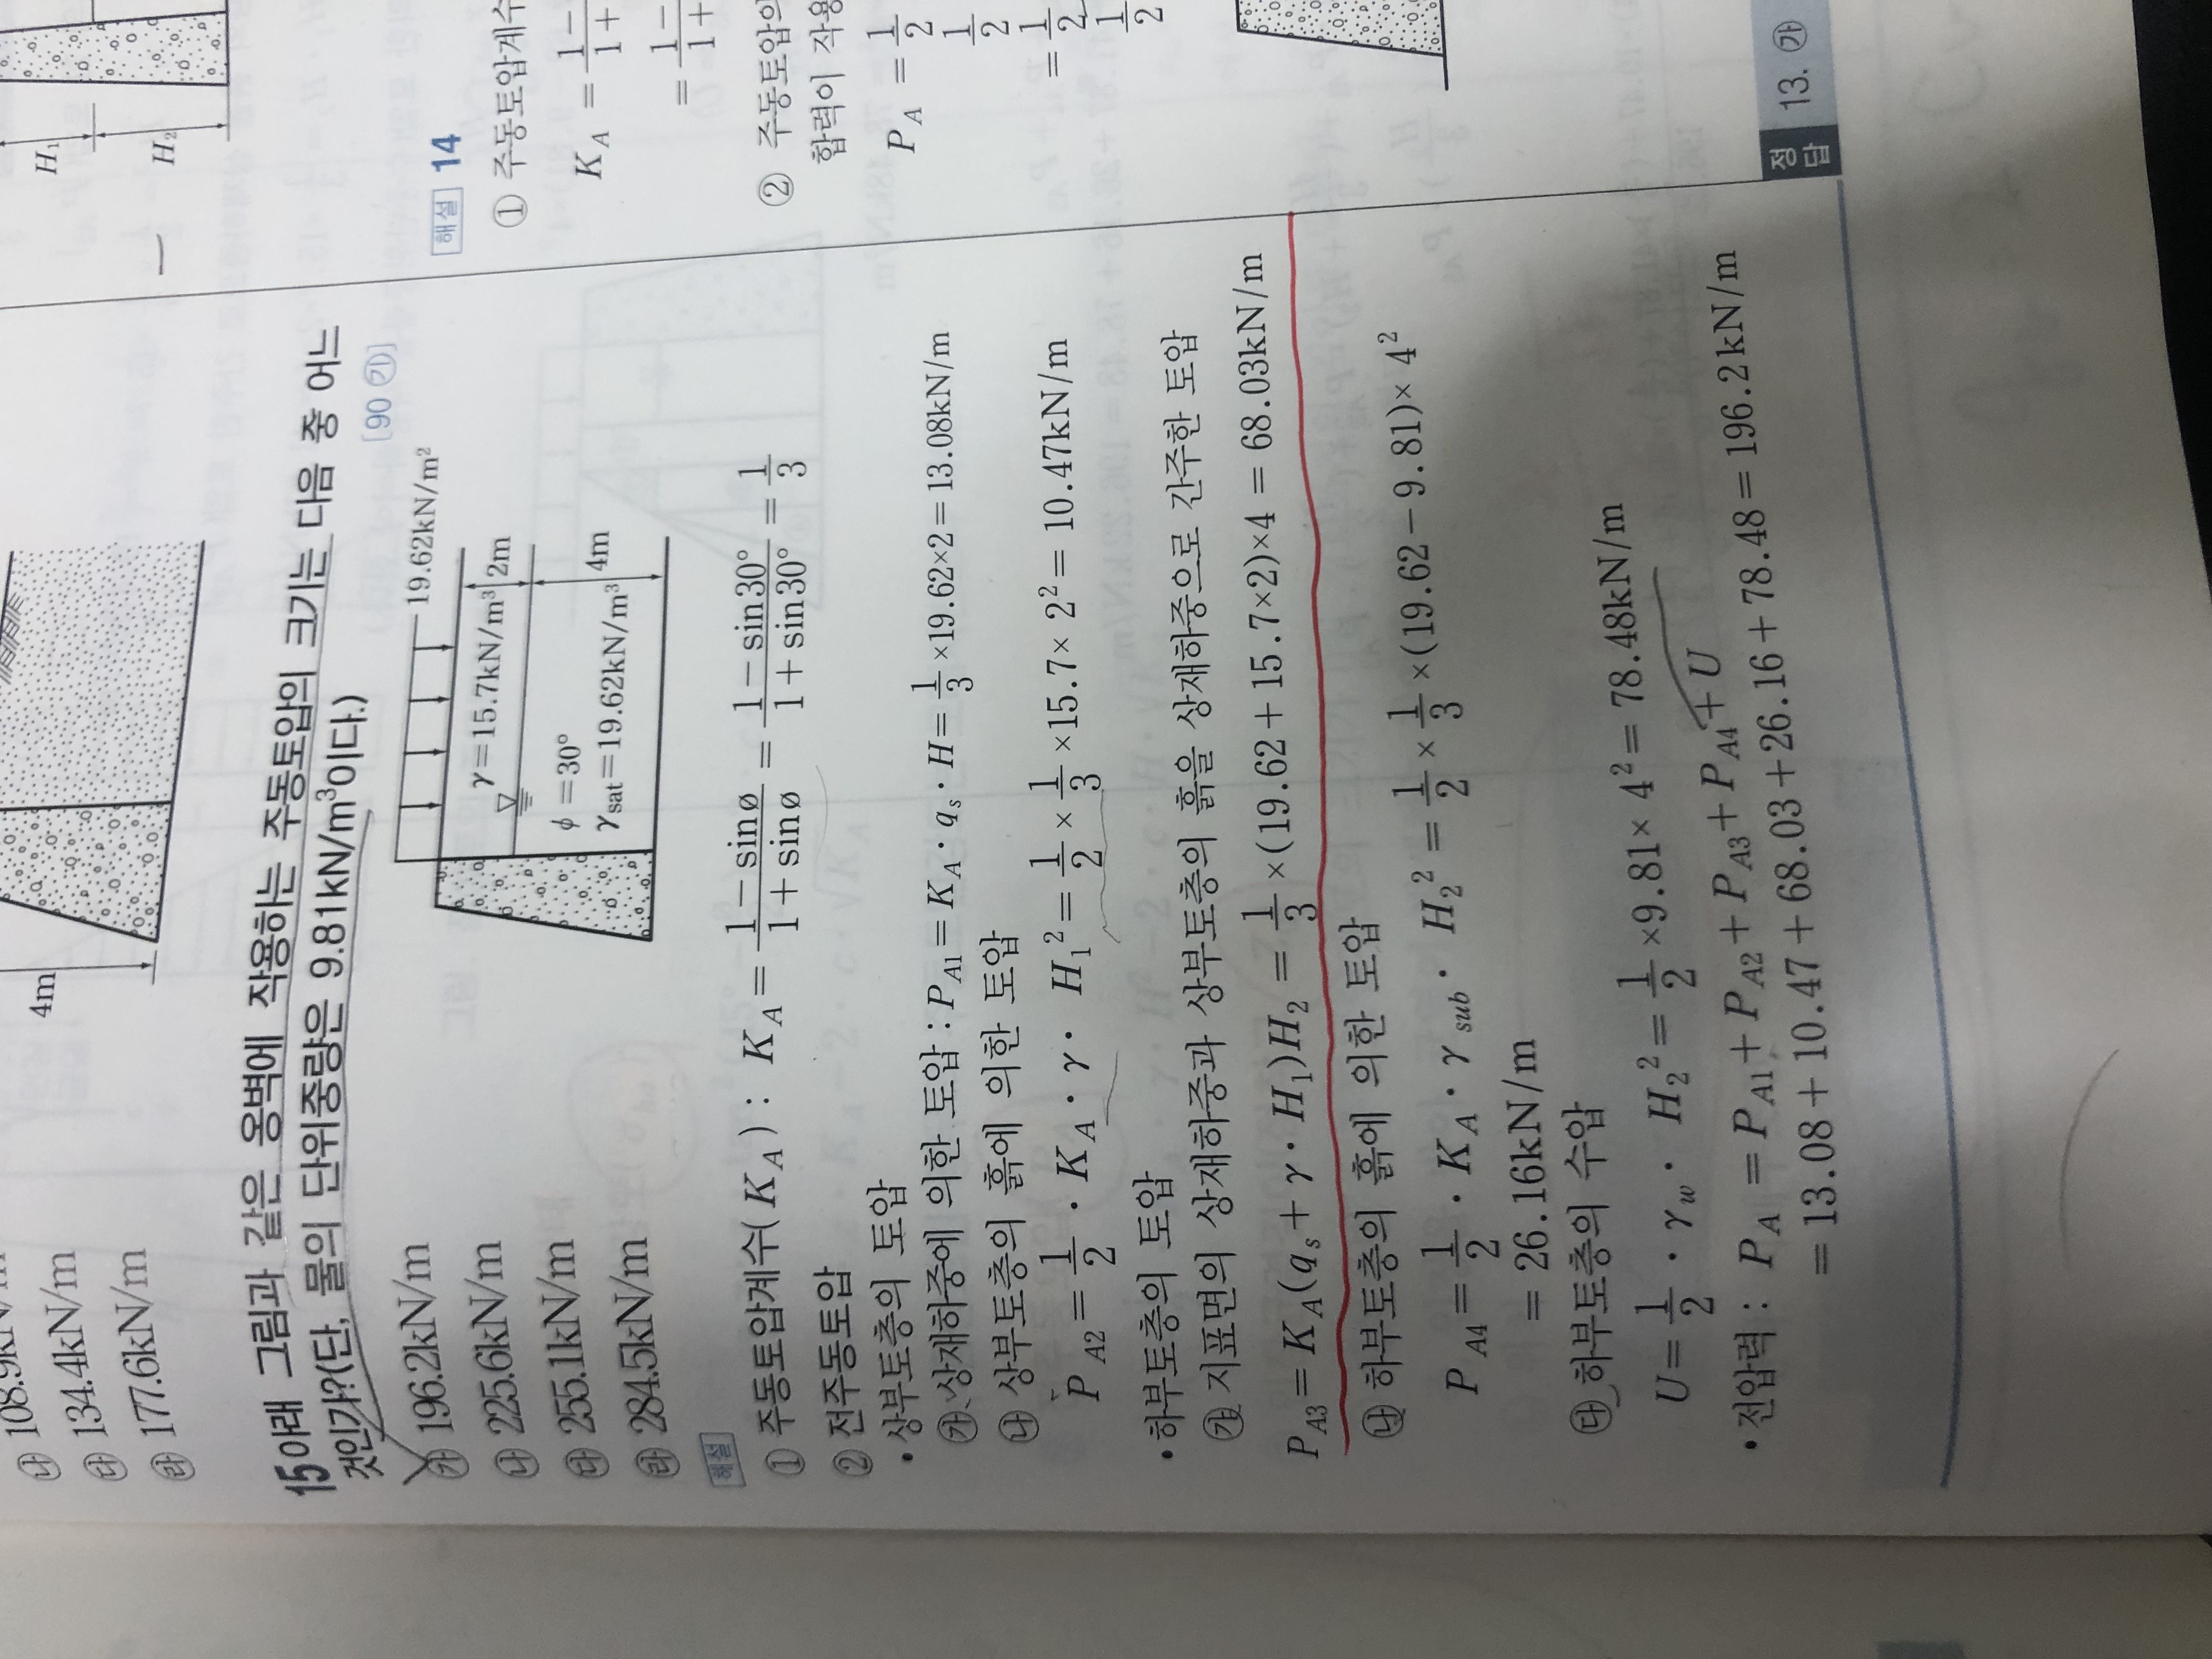 4m
㉯ 108.9kN/m
㉰ 134.4kN/m
㉱ 177.6kN/m
15 아래 그림과 같은 옹벽에 작용하는 주동토압의 크기는 다음 중 어느
것인가?(단, 물의 단위중량은 9.81kN/m³이다.) [90 ㉮]
㉮ 196.2kN/m
㉯ 225.6kN/m
㉰ 255.1kN/m
㉱ 284.5kN/m
19.62kN/m²
γ=15.7kN/m³
2m
φ=30°
γsat=19.62kN/m³
4m
해설
① 주동토압계수(K_A) : K_A = (1-sinø)/(1+sinø) = (1-sin30°)/(1+sin30°) = 1/3
② 전주동토압
• 상부토층의 토압
㉮ 상재하중에 의한 토압 : P_A1 = K_A · q_s · H = 1/3 ×19.62×2 = 13.08kN/m
㉯ 상부토층의 흙에 의한 토압
P_A2 = 1/2 · K_A · γ · H₁² = 1/2 × 1/3 ×15.7× 2² = 10.47kN/m
• 하부토층의 토압
㉮ 지표면의 상재하중과 상부토층의 흙을 상재하중으로 간주한 토압
P_A3 = K_A(q_s + γ · H₁)H₂ = 1/3 ×(19.62+15.7×2)×4 = 68.03kN/m
㉯ 하부토층의 흙에 의한 토압
P_A4 = 1/2 · K_A · γ_sub · H₂² = 1/2 × 1/3 ×(19.62-9.81)× 4²
= 26.16kN/m
㉰ 하부토층의 수압
U = 1/2 · γ_w · H₂² = 1/2 ×9.81× 4² = 78.48kN/m
• 전압력 : P_A = P_A1 + P_A2 + P_A3 + P_A4 + U
= 13.08+10.47+68.03+26.16+78.48 = 196.2kN/m
H₁
H₂
해설 14
① 주동토압계수
K_A = 1-
1+
= 1-
1+
② 주동토압의
합력이 작용
P_A = 1/2
1/2
= 1/2
1/2
정답 13. ㉮